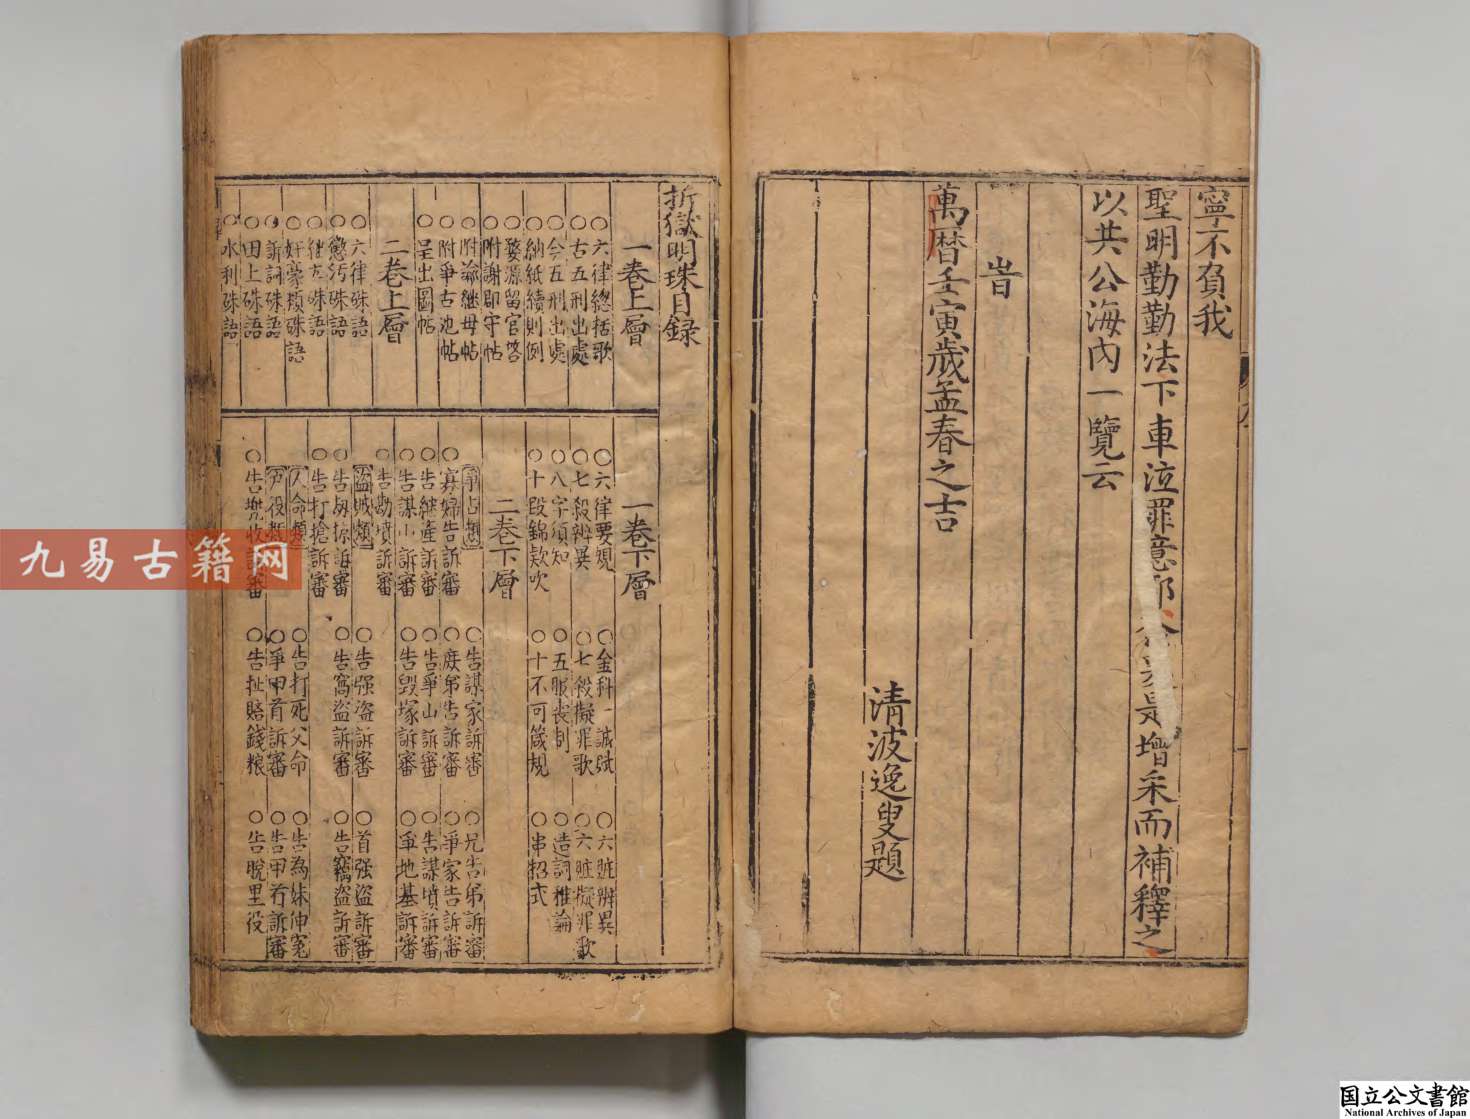 寧不負我
聖明勤勤法下車泣罪意耶
是增采而補釋之
以共公海內一覽云
旹
萬曆壬寅歲孟春之吉
清波逸叟題
折獄明珠目録
一卷上層
○六律總括歌
○古五刑出處
○今五刑出處
○納紙續則例
○婺源留官答
○附謝郡守帖
○附論継母帖
○附爭古池帖
○呈出圖帖
二卷上層
○六律硃語
○懲污硃語
硃語
○奸豪類硃語
○訴詞硃語
○田土硃語
○水利硃語
一卷下層
○六律要規 ○金科一誠賦 ○六賍辨異
○七殺辨異 ○七殺擬罪歌 ○六賍擬罪歌
○八字須知 ○五服喪制 ○造詞推論
○十段錦款 ○十不可箴規 ○串招式
二卷下層
爭占類 ○告謀家訴審 ○兄告弟訴審
○寡婦告訴審 ○庶弟告訴審 ○爭家告訴審
○告継產訴審 ○告爭山訴審 ○告謀墳訴審
○告謀山訴審 ○告毀塚訴審 ○爭地基訴審
○告勘墳訴審
盜賊類 ○告强盜訴審 ○首强盜訴審
○告刼掠訴審 ○告窩盜訴審 ○告竊盜訴審
○告打搶訴審
人命類 ○告打死父命 ○告為妹伸冤
戶役類 ○爭甲首訴審 ○告甲首訴審
○告兠收訴審 ○告扯賠錢粮 ○告脫里役
九易古籍网
国立公文書館
National Archives of Japan